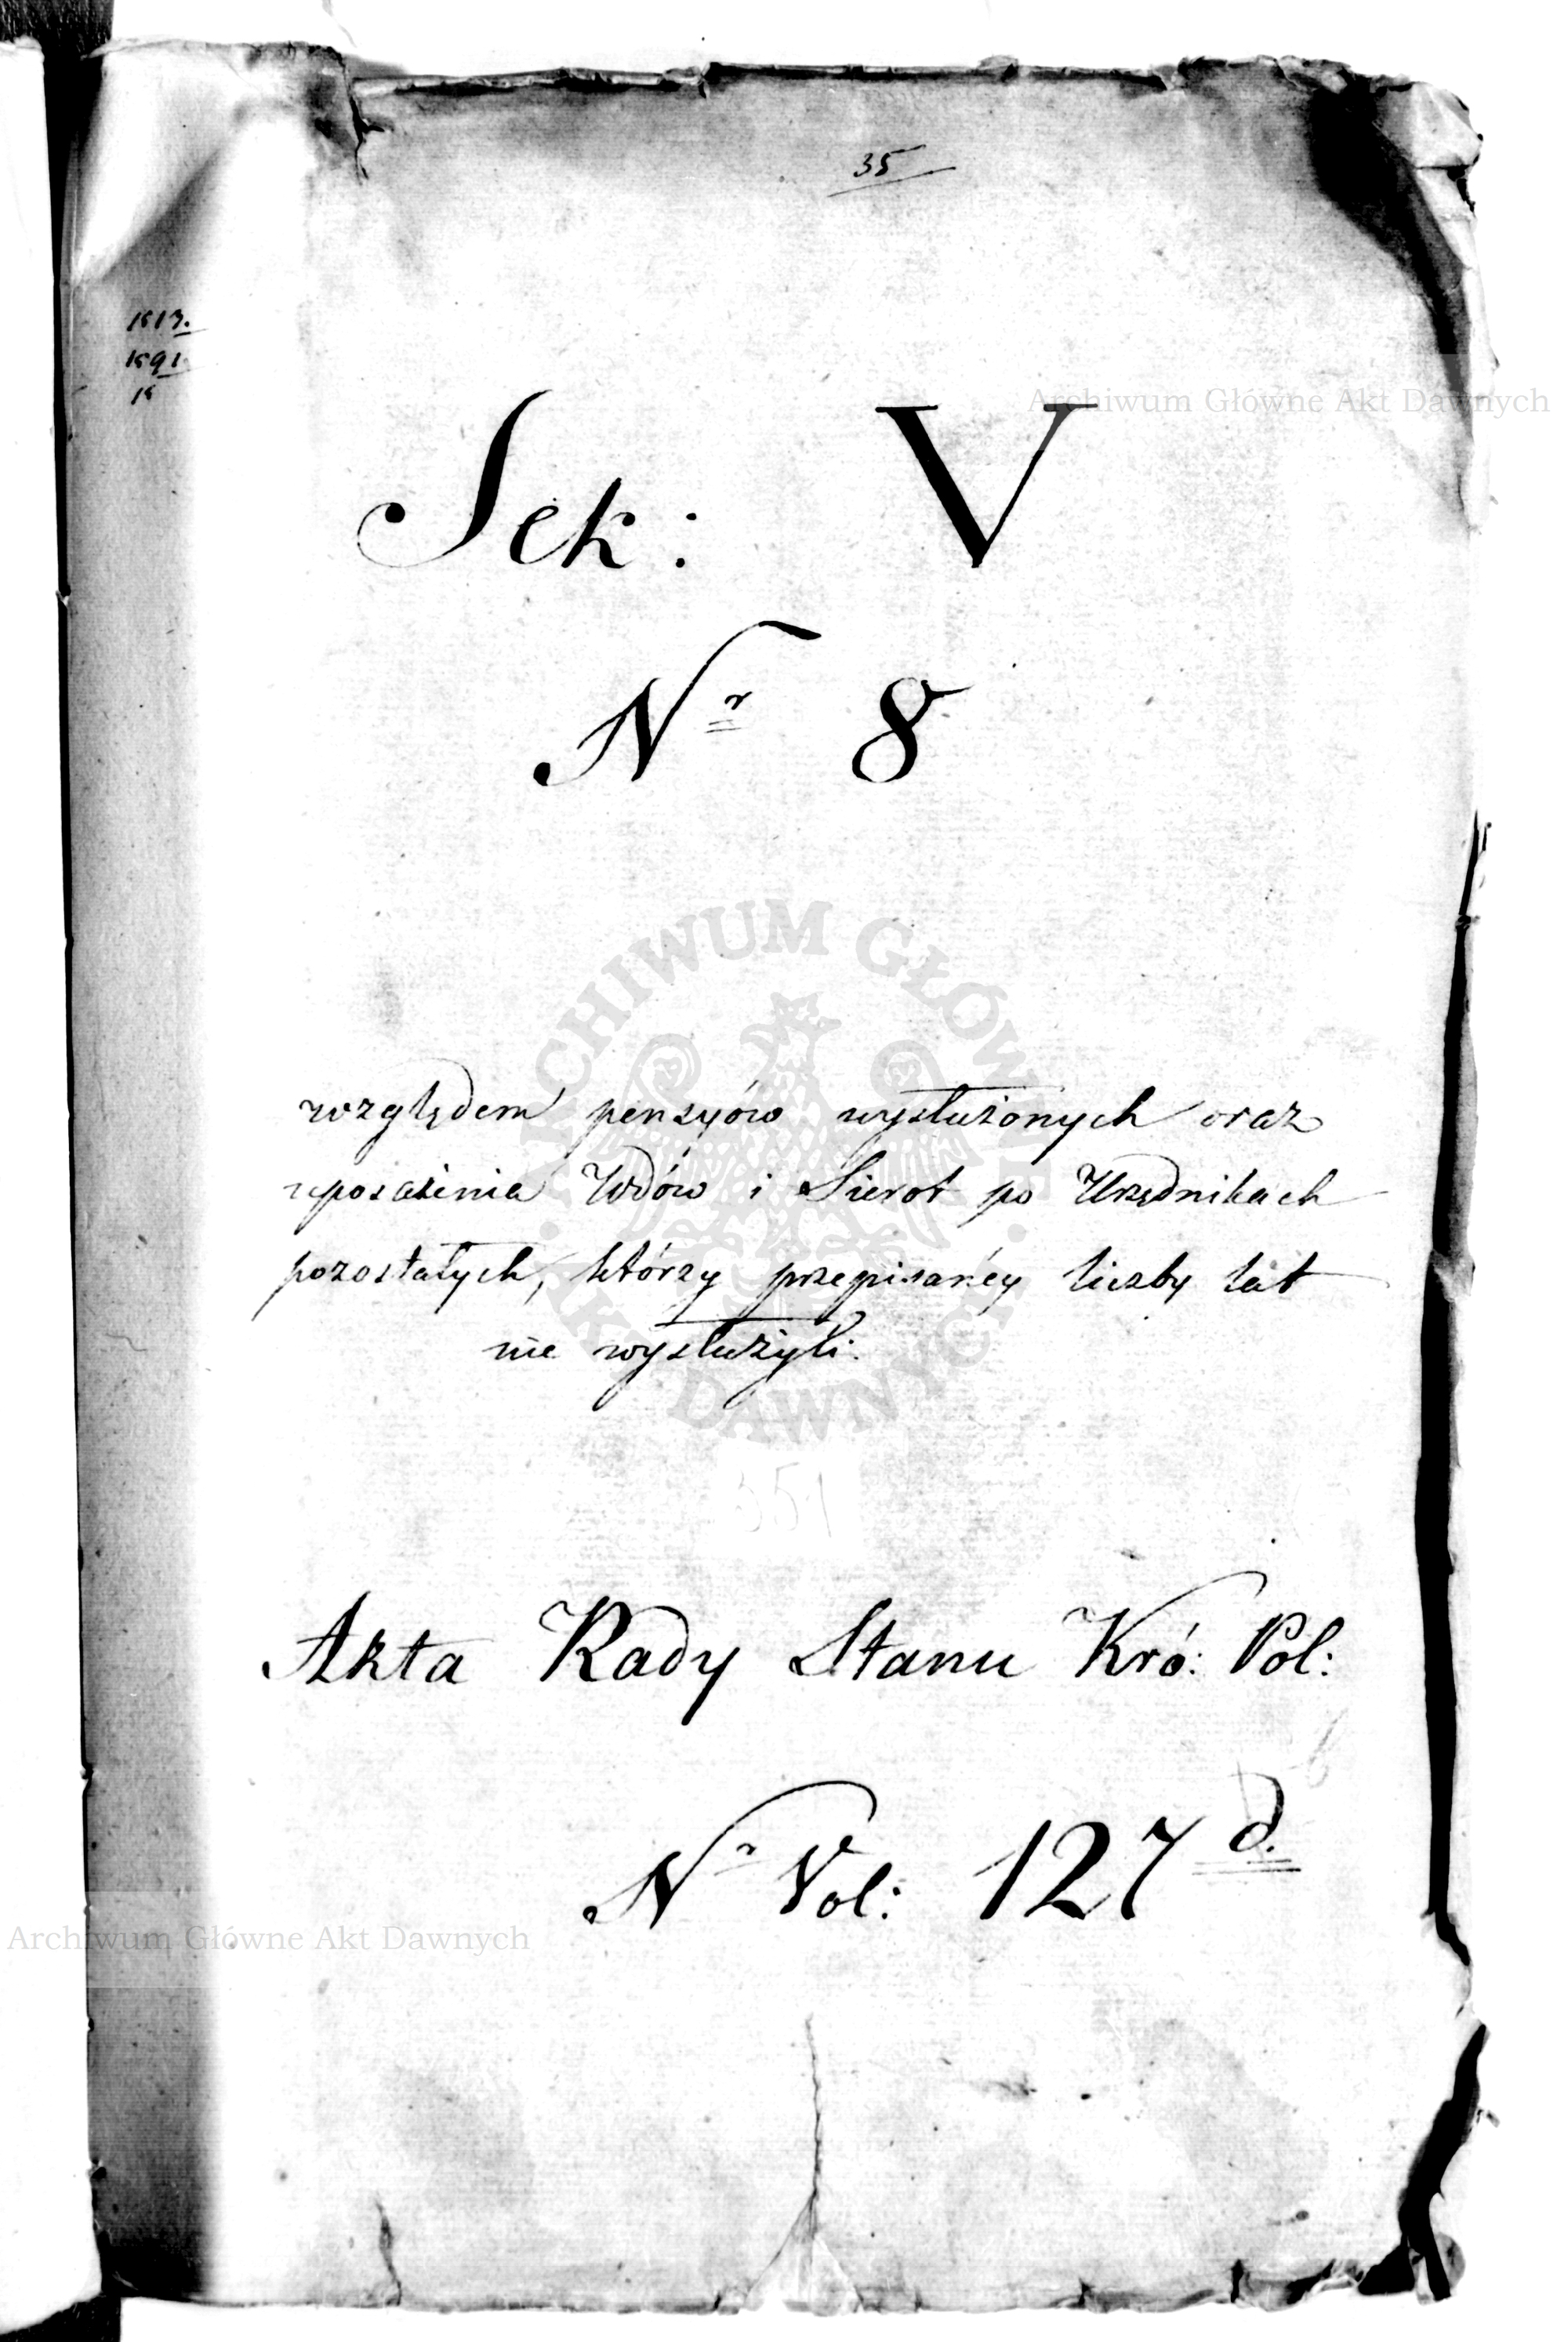 35
Sek: V
Nr 8
względem pensyów wysłużonych oraz
uposażenia Wdów i Sierot po Urzędnikach
pozostałych, którzy przepisanéy liczby lat
nie wysłużyli.
351
Akta Rady Stanu Kró: Pol:
Nr Vol: 127 d.
Archiwum Główne Akt Dawnych
ARCHIWUM GŁÓWNE AKT DAWNYCH
Archiwum Główne Akt Dawnych